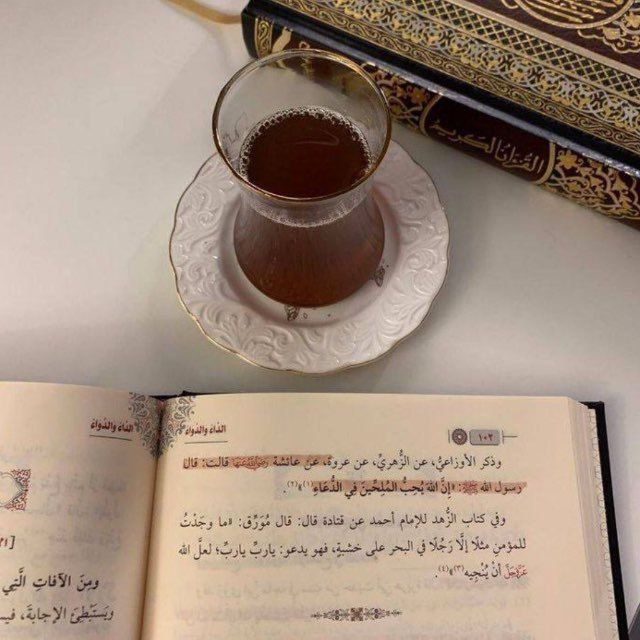 القرآن الكريم
الداء والدواء
١٠٢
وذكر الأوزاعيُّ، عن الزُّهريِّ، عن عروةَ، عن عائشة رضي الله عنها قالت: قال
رسول الله ﷺ: «إنَّ اللهَ يُحِبُّ المُلِحِّينَ فِي الدُّعَاءِ»(١)(٢).
وفي كتاب الزُّهد للإمام أحمد عن قتادة قال: قال مُوَرِّق: «ما وجَدْتُ
للمؤمنِ مثلًا إلَّا رَجُلًا في البحر على خشبةٍ، فهو يدعو: ياربِّ ياربِّ؛ لعلَّ الله
عَزَّوَجَلَّ أنْ يُنْجِيه(٣)»(٤).
الداء والدواء
[٢١
ومِنَ الآفاتِ الَّتِي
ويَسْتَبْطِئَ الإجابةَ،